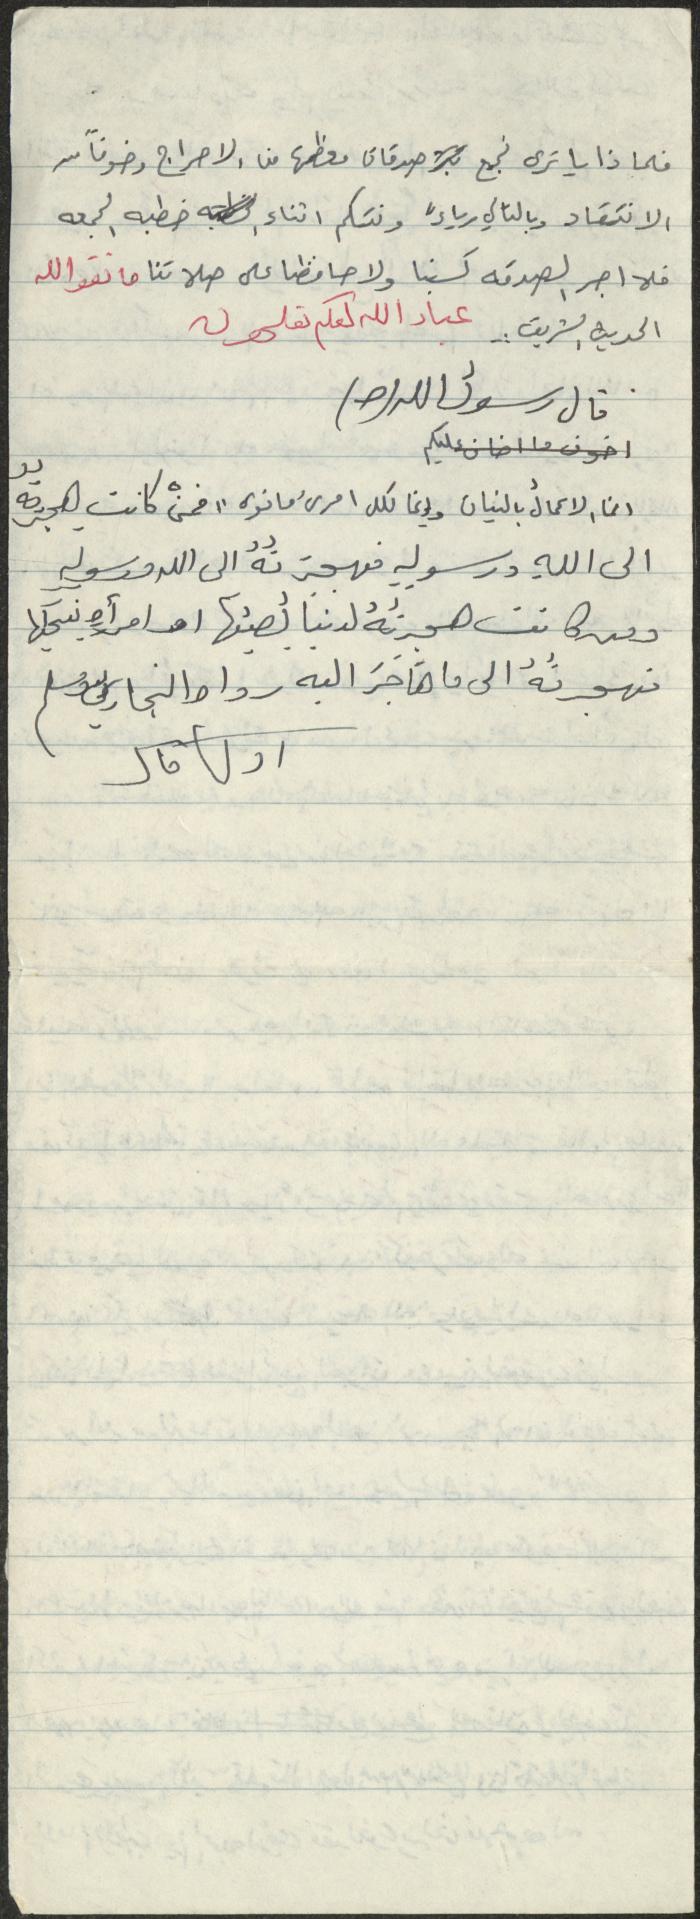 فلماذا يا ترى نجمع صدقات معظمها من الاحراج وخوفاً من
الانتقاد وبالتالي رياءً ونتكلم اثناء خطبه الجمعه
فلا اجر الصدقه كسبنا ولا حافظنا على صلاتنا فاتقوا الله
عباد الله لعلكم تفلحون
الحديث الشريف ..
قال رسول الله (ص)
اخوف ما اخاف عليكم
انما الاعمالُ بالنيات وإنما لكل امرىء ما نوى " فمنْ كانت هجرتهُ
الى اللهِ ورسولهِ فهجرتهُ الى الله ورسولهِ
ومن كانت هجرتهُ لدنيا يُصيبُها او امرأةٍ ينكحُها
فهجرتهُ الى ما هَاجَرَ اليه رواه البخاري ومسلم
اولا قال